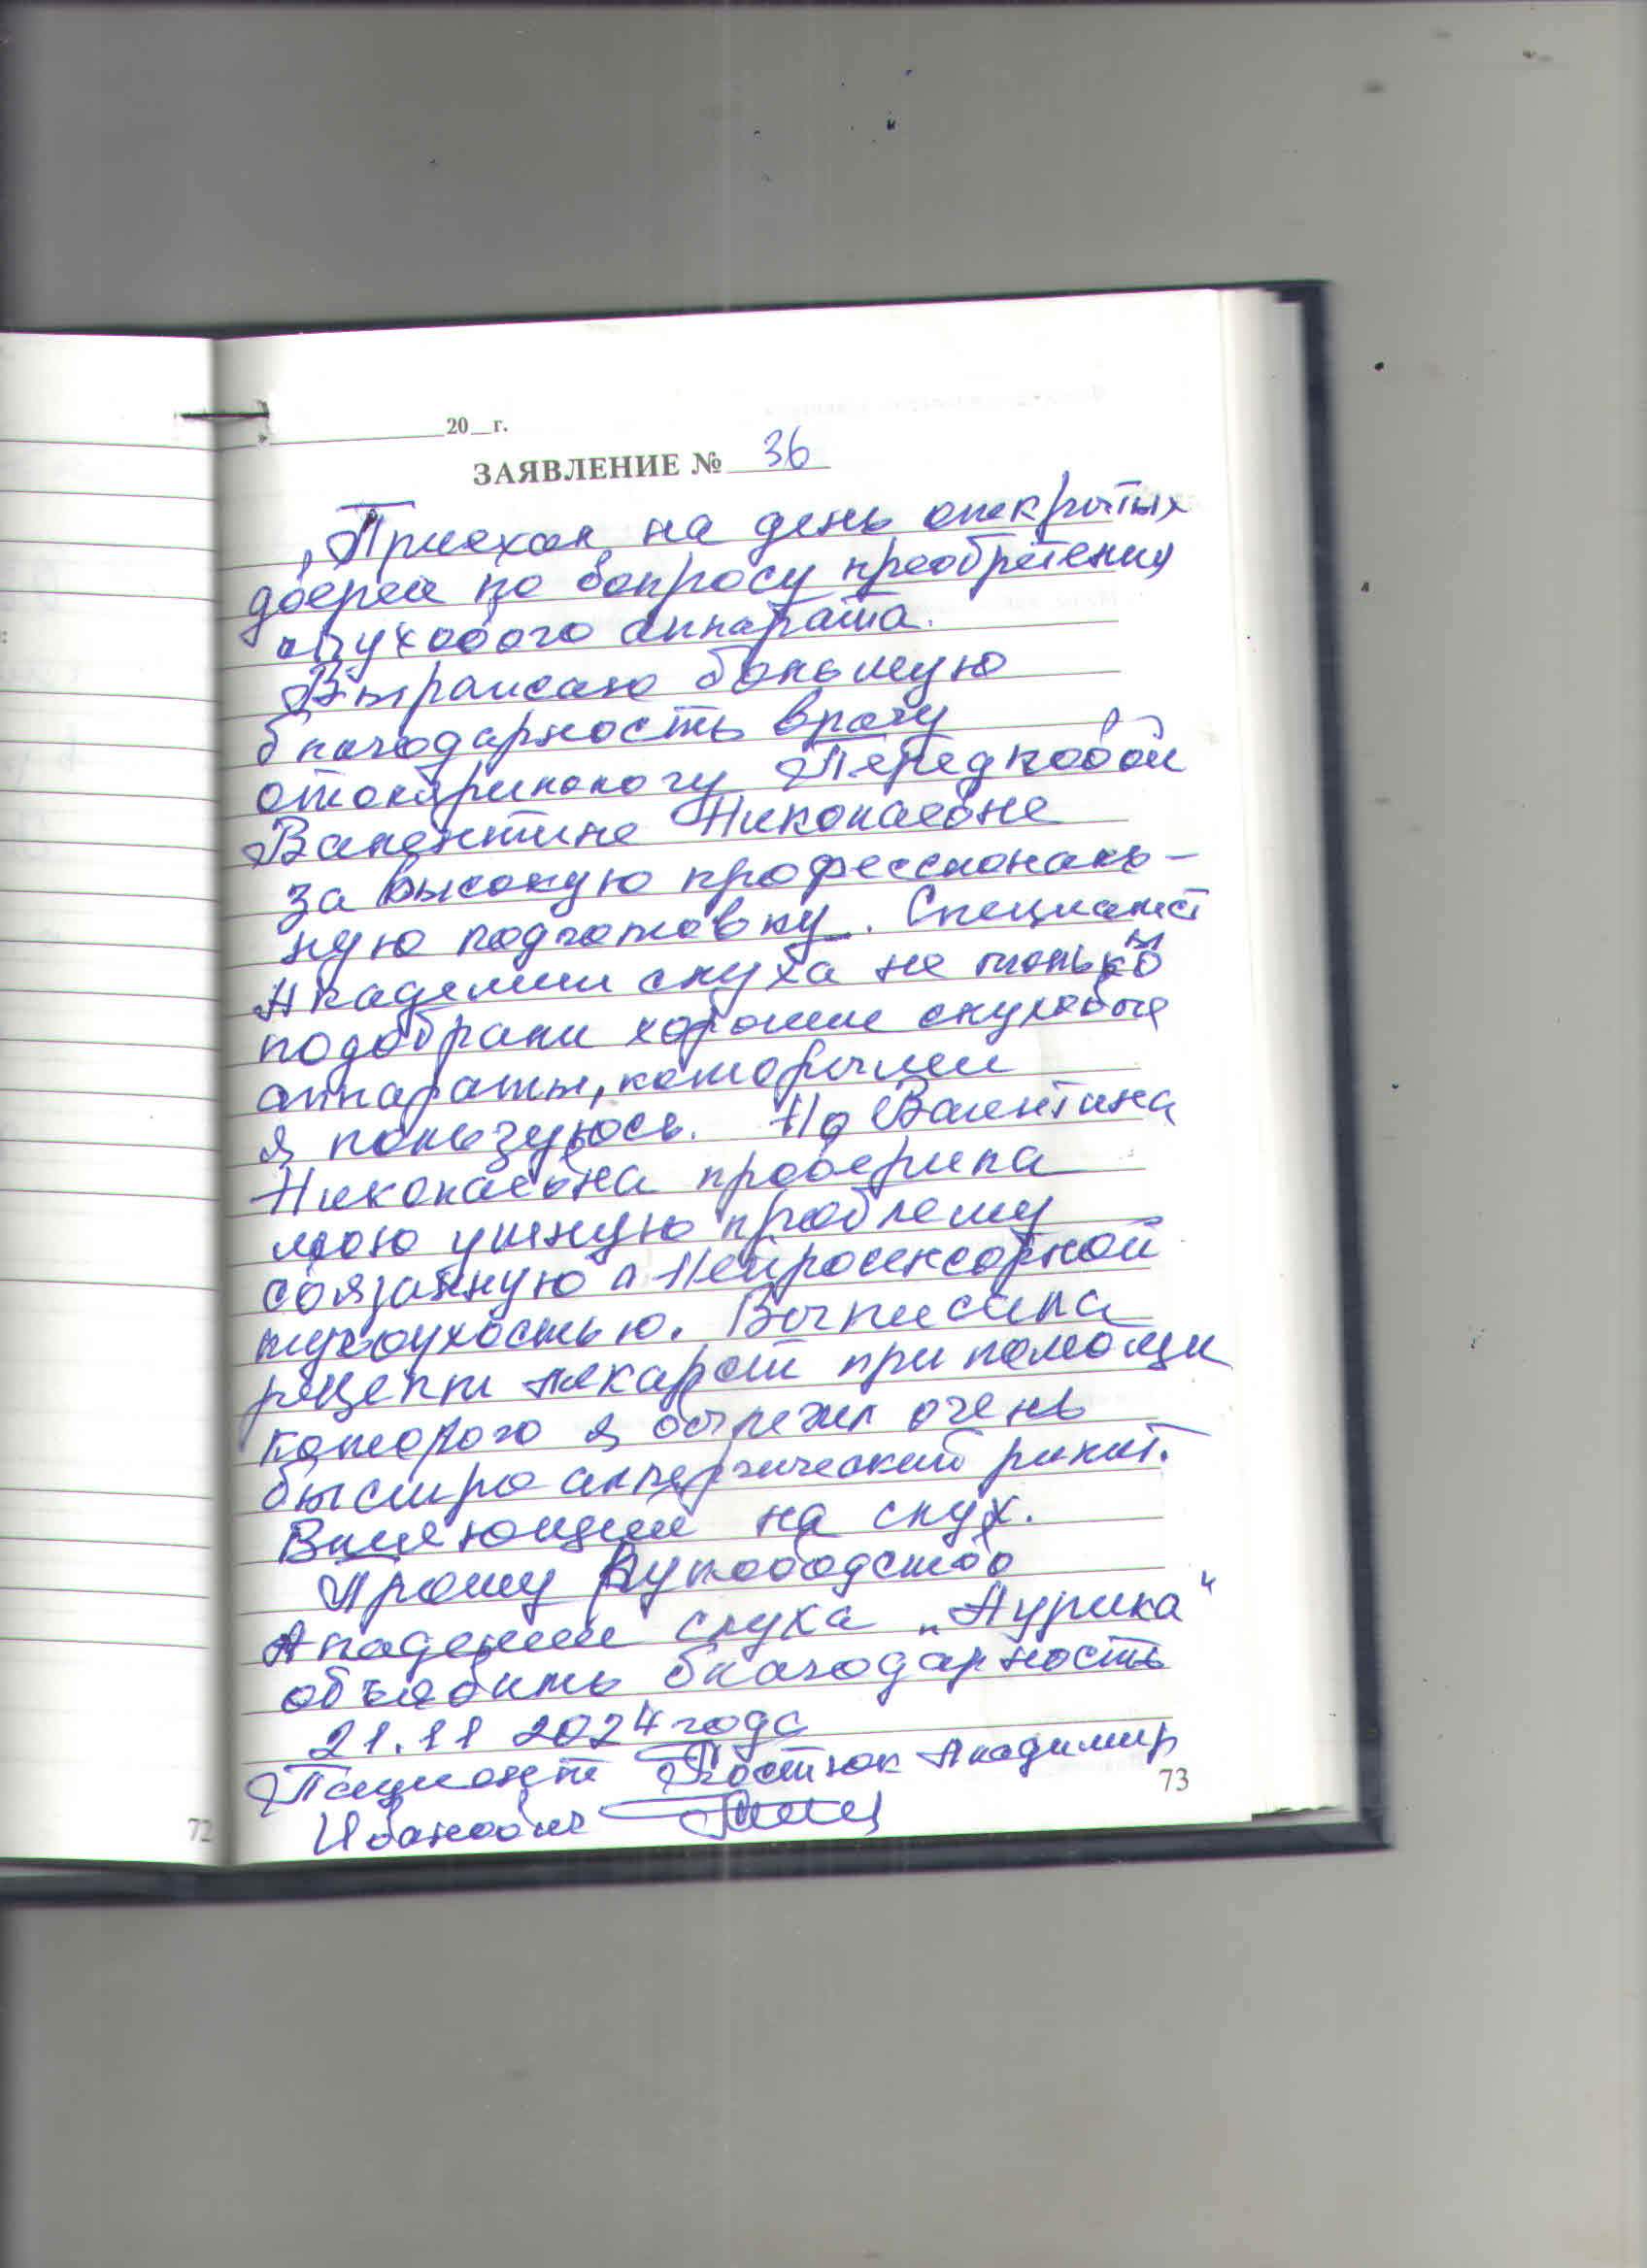 20__г.
ЗАЯВЛЕНИЕ № 36
Приехал на день открытых
дверей по вопросу преобретения
слухового аппарата.
Выражаю большую
благодарность врачу
отоларингологу Передковой
Валентине Николаевне
за высокую профессиональ-
ную подготовку. Специалист
ы
Академии слуха не только
подобрали хорошие слуховые
аппараты, которыми
я пользуюсь. Но Валентина
Николаевна проверила
мою ушную проблему
связанную с Нейросенсорной
тугоухостью. Выписала
рецепт лекарст при помощи
которого я вылежил очень
быстро аллергический ринит.
Влияющий на слух.
Прошу Руководство
Академии слуха „Аурика"
объявить благодарность
21.11 2024 года
Пациент Костюк Владимир
Иванович
72
73